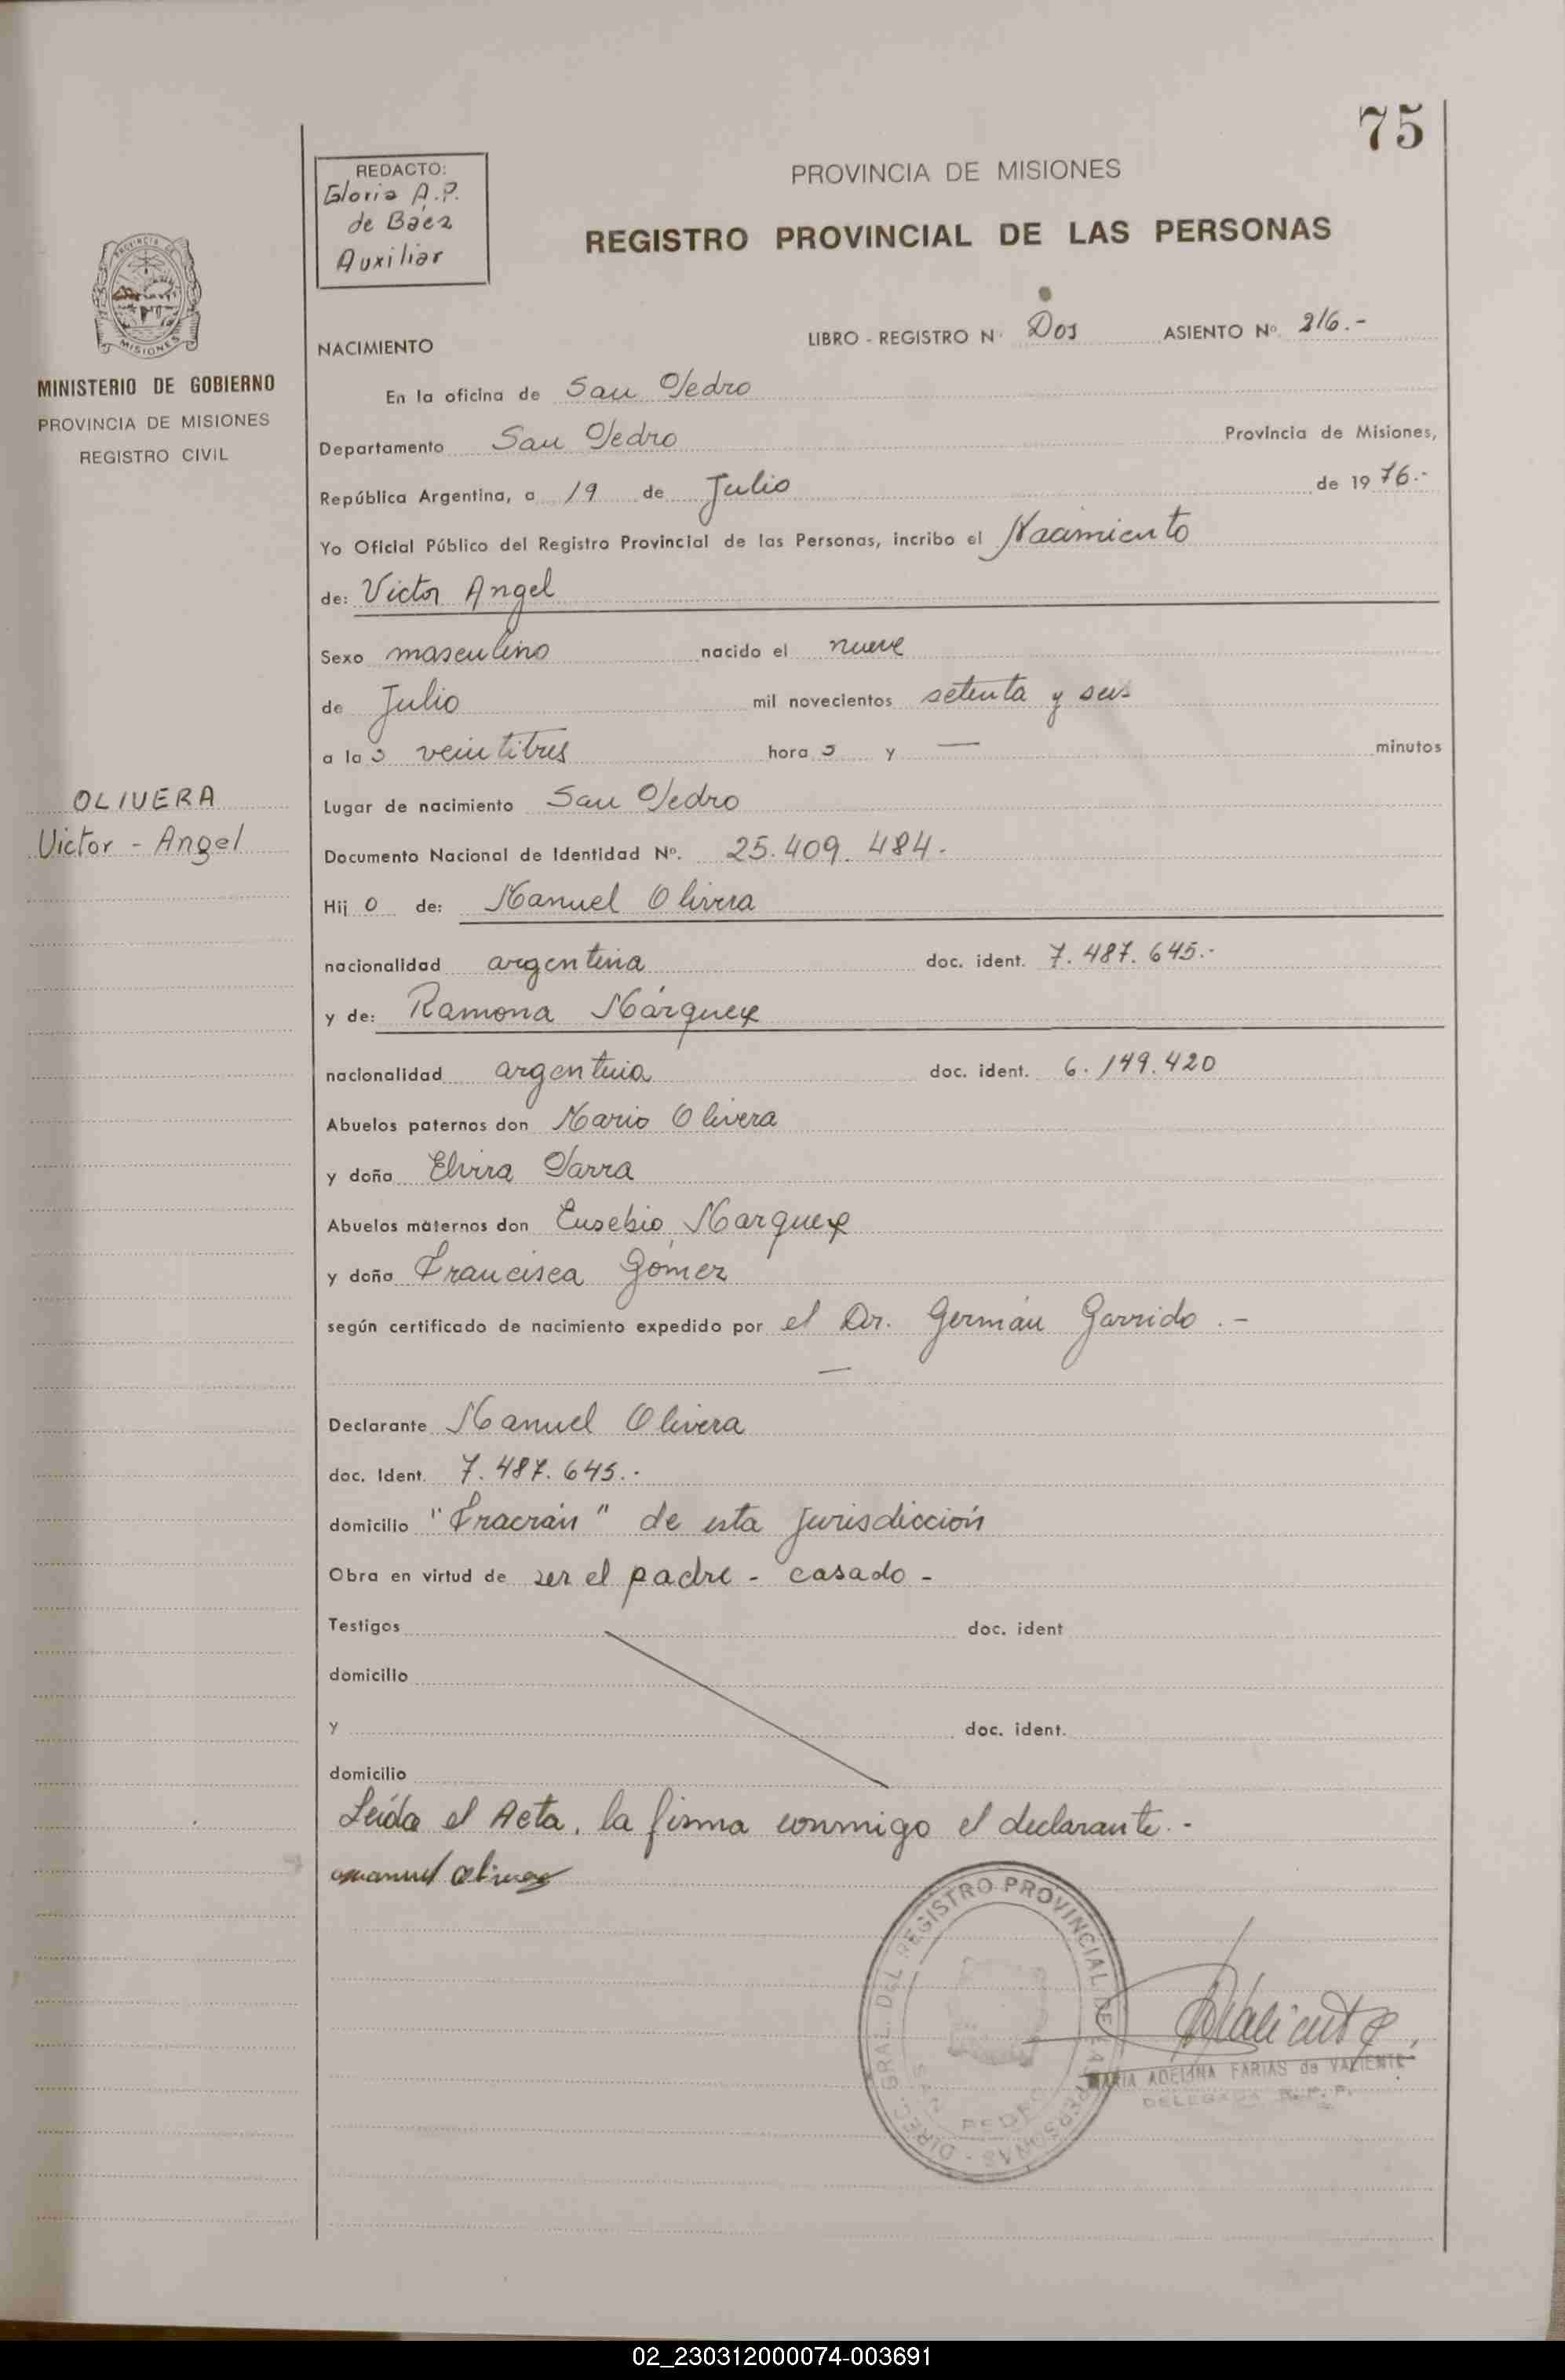 75
REDACTO:
Gloria A.P.
de Báez
Auxiliar
PROVINCIA DE MISIONES
REGISTRO PROVINCIAL DE LAS PERSONAS
PROVINCIA DE
MISIONES
MINISTERIO DE GOBIERNO
PROVINCIA DE MISIONES
REGISTRO CIVIL
NACIMIENTO LIBRO - REGISTRO N· Dos ASIENTO Nº 216.-
En la oficina de San Pedro
Departamento San Pedro Provincia de Misiones,
República Argentina, a 19 de Julio de 1976.-
Yo Oficial Público del Registro Provincial de las Personas, incribo el Nacimiento
de: Victor Angel
Sexo masculino nacido el nueve
de Julio mil novecientos setenta y seis
a las veintitres horas y — minutos
OLIVERA
Victor - Angel
Lugar de nacimiento San Pedro
Documento Nacional de Identidad Nº. 25.409.484.
Hijo de: Manuel Olivera
nacionalidad argentina doc. ident. 7.487.645.-
y de: Ramona Márquez
nacionalidad argentina doc. ident. 6.149.420
Abuelos paternos don Mario Olivera
y doña Elvira Parra
Abuelos maternos don Eusebio Marquez
y doña Francisca Gómez
según certificado de nacimiento expedido por el Dr. Germán Garrido.-
—
Declarante Manuel Olivera
doc. Ident. 7.487.645.-
domicilio "Fracrán" de esta jurisdicción
Obra en virtud de ser el padre - casado -
Testigos doc. ident
domicilio
y doc. ident.
domicilio
Leída el Acta, la firma conmigo el declarante.-
manuel olivera
DIREC. GRAL. DEL REGISTRO PROVINCIAL DE LAS PERSONAS -
SAN PEDRO
Valiente
MARIA ADELINA FARIAS de VALIENTE
DELEGADA R. P. P.
02_230312000074-003691